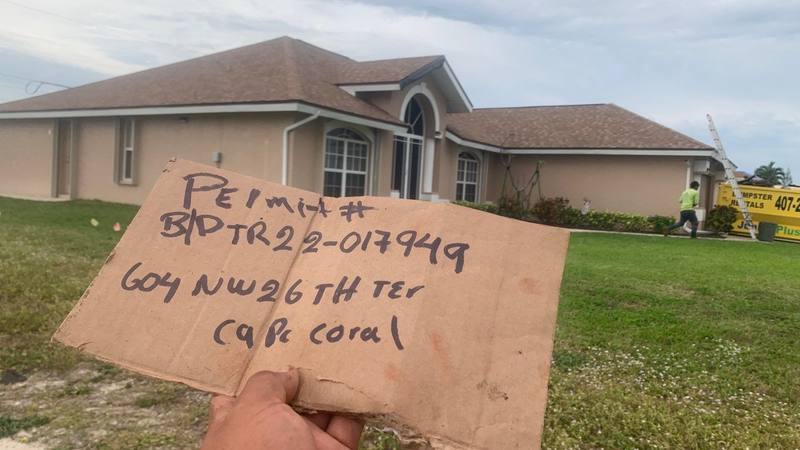 Permit #
B/D TR22-017949
604 NW26TH TEr
Cape Coral
DUMPSTER
RENTALS 407-2
Plus